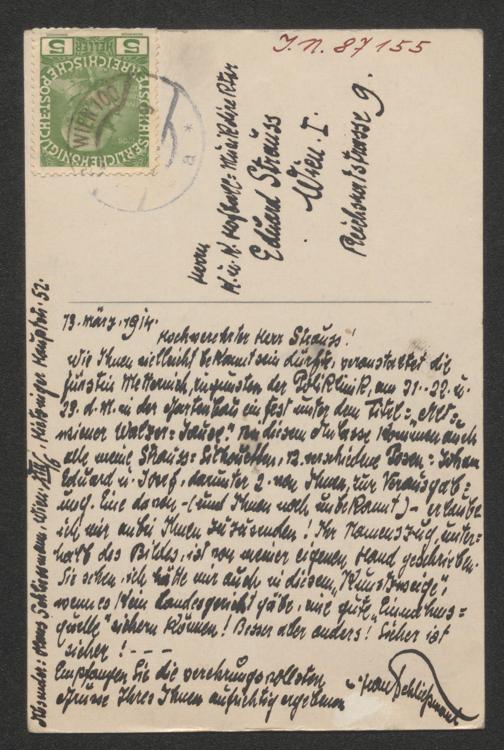 I.N. 87155
5 HELLER 5
KAISERLICHE KÖNIGLICHE ÖSTERREICHISCHE POST
WIEN 100
Herrn
K. u. K. Hofball-Musikdirektor
Eduard Strauss
Wien. I.
Reichsratsstrasse 9.
Absender: Hans Schliessmann, Wien, XIII/, Hietzinger Hauptstr. 52.
13. März. 1914.
Hochverehrter Herr Strauss!
Wie Ihnen vielleicht bekannt sein dürfte, veranstaltet die
Fürstin Metternich, zugunsten der Poliklinik, am 21.-22. u.
23. d. M. in der Gartenbau ein Fest unter dem Titel: "Alt-
wiener Walzer-Jause." Zu diesem Anlasse kommen auch
alle meine Strauss-Silhouetten, 12. verschiedene Posen-Johann
Eduard u. Josef, darunter 2. von Ihnen, zur Verausgab-
ung. Eine davon -(und Ihnen noch unbekannt)- erlaube
ich mir anbei Ihnen zuzusenden! Ihr Namenszug, unter-
halb des Bildes, ist von meiner eigenen Hand geschrieben.
Sie sehen, ich hätte mir auch in diesem "Kunstzweige",
wenn es kein Landesgericht gäbe, eine gute "Einnahms-
quelle" sichern können! Besser aber anders! Sicher ist
sicher! - - -
Empfangen Sie die verehrungsvollsten
Grüsse Ihres Ihnen aufrichtig ergebenen
Hans Schließmann